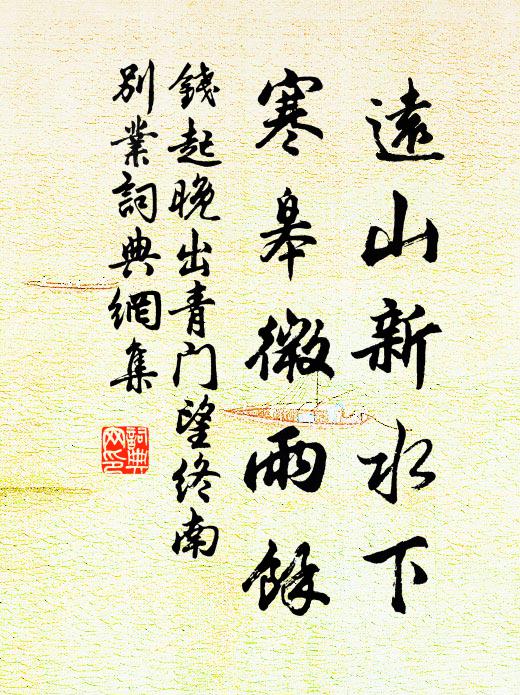 遠山新水下
寒皋微雨餘
錢起晚出青门望终南
别業詞典網集
詞典網印